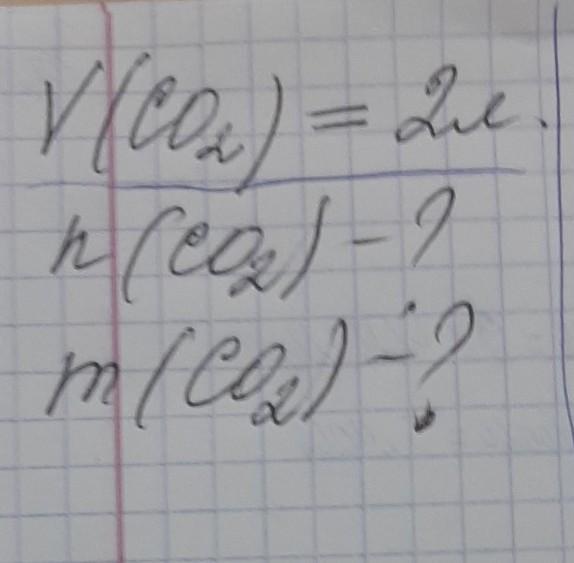 V(CO₂) = 2л.
n(CO₂) - ?
m(CO₂) - ?